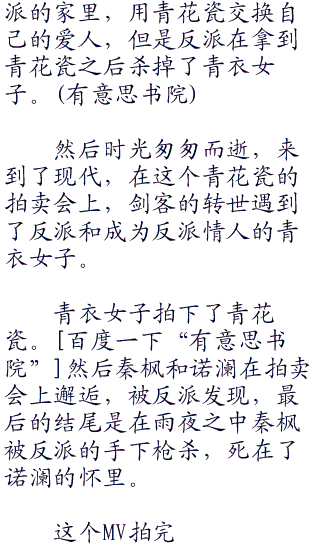 派的家里，用青花瓷交换自
己的爱人，但是反派在拿到
青花瓷之后杀掉了青衣女
子。(有意思书院)
然后时光匆匆而逝，来
到了现代，在这个青花瓷的
拍卖会上，剑客的转世遇到
了反派和成为反派情人的青
衣女子。
青衣女子拍下了青花
瓷。[百度一下“有意思书
院”]然后秦枫和诺澜在拍卖
会上邂逅，被反派发现，最
后的结尾是在雨夜之中秦枫
被反派的手下枪杀，死在了
诺澜的怀里。
这个MV拍完